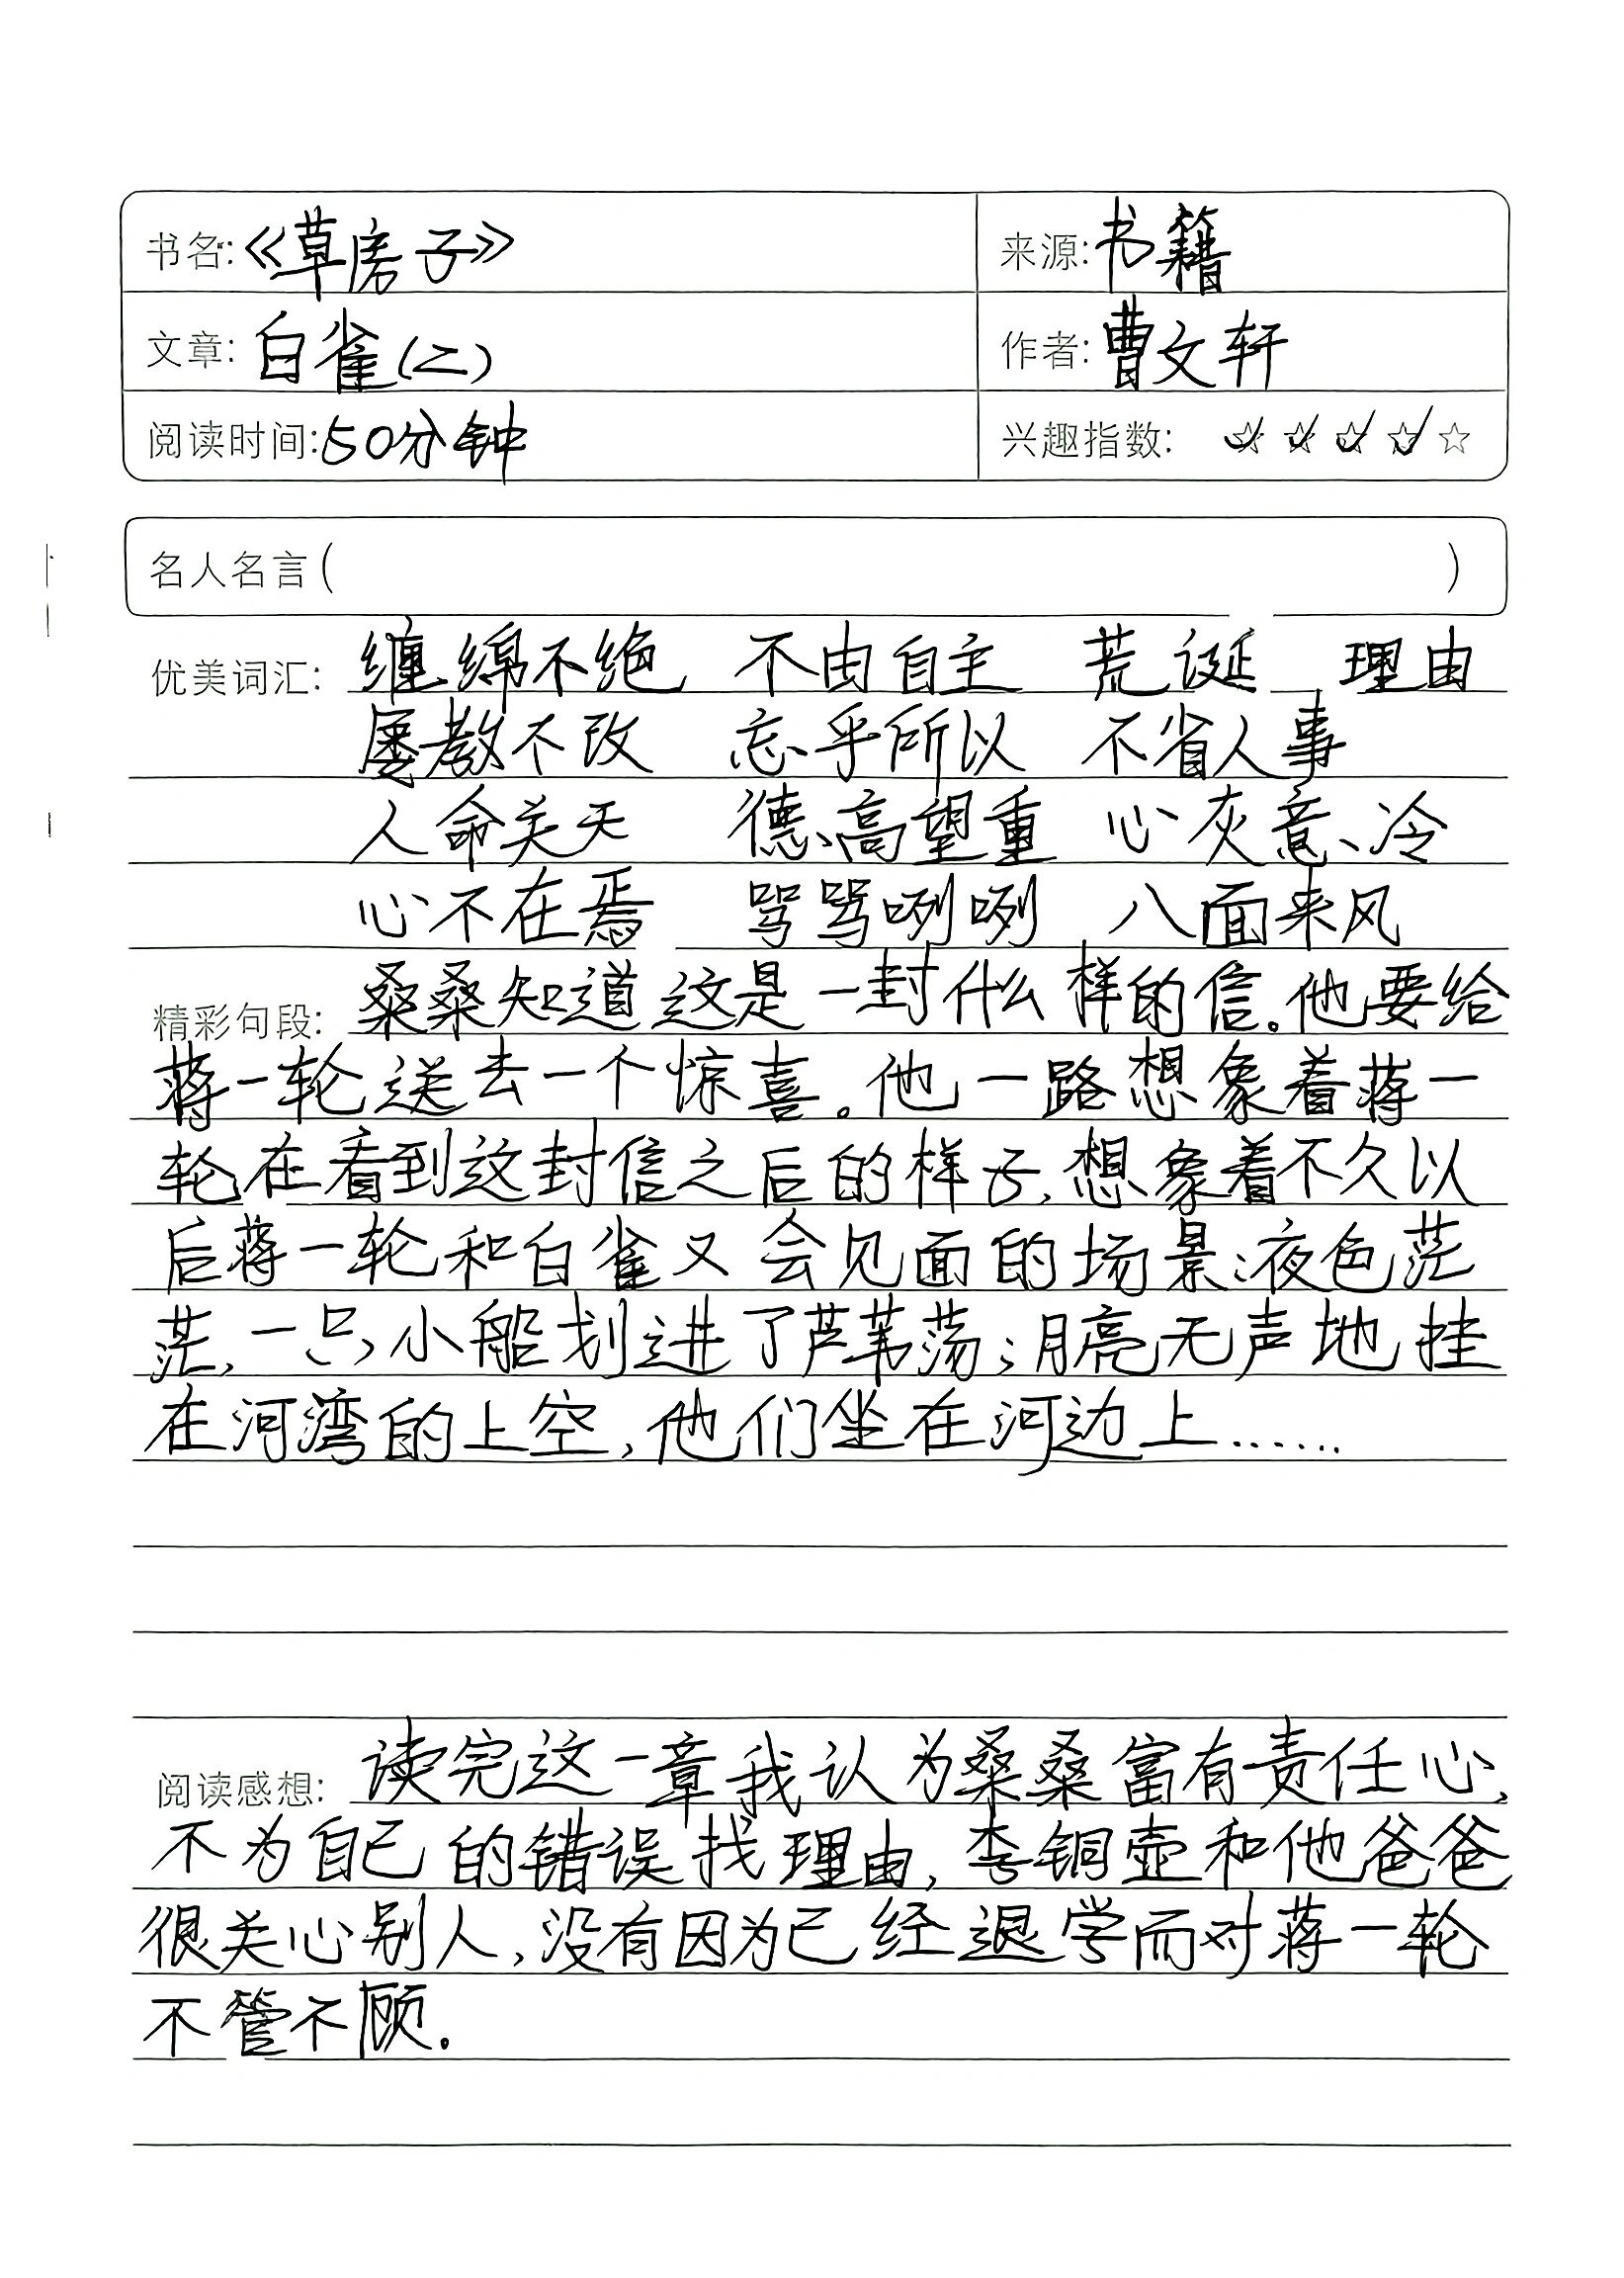 书名:《草房子》 来源:书籍
文章:白雀(二) 作者:曹文轩
阅读时间:50分钟 兴趣指数: ☆☆☆☆☆
名人名言( )
优美词汇: 缠绵不绝 不由自主 荒诞 理由
屡教不改 忘乎所以 不省人事
人命关天 德高望重 心灰意冷
心不在焉 骂骂咧咧 八面来风
精彩句段: 桑桑知道这是一封什么样的信。他要给
蒋一轮送去一个惊喜。他一路想象着蒋一
轮在看到这封信之后的样子,想象着不久以
后蒋一轮和白雀又会见面的场景:液色茫
茫,一只小船划进了芦苇荡;月亮无声地挂
在河湾的上空,他们坐在河边上……
阅读感想: 读完这一章我认为桑桑富有责任心,
不为自己的错误找理由,李铜壶和他爸爸
很关心别人,没有因为已经退学而对蒋一轮
不管不顾.